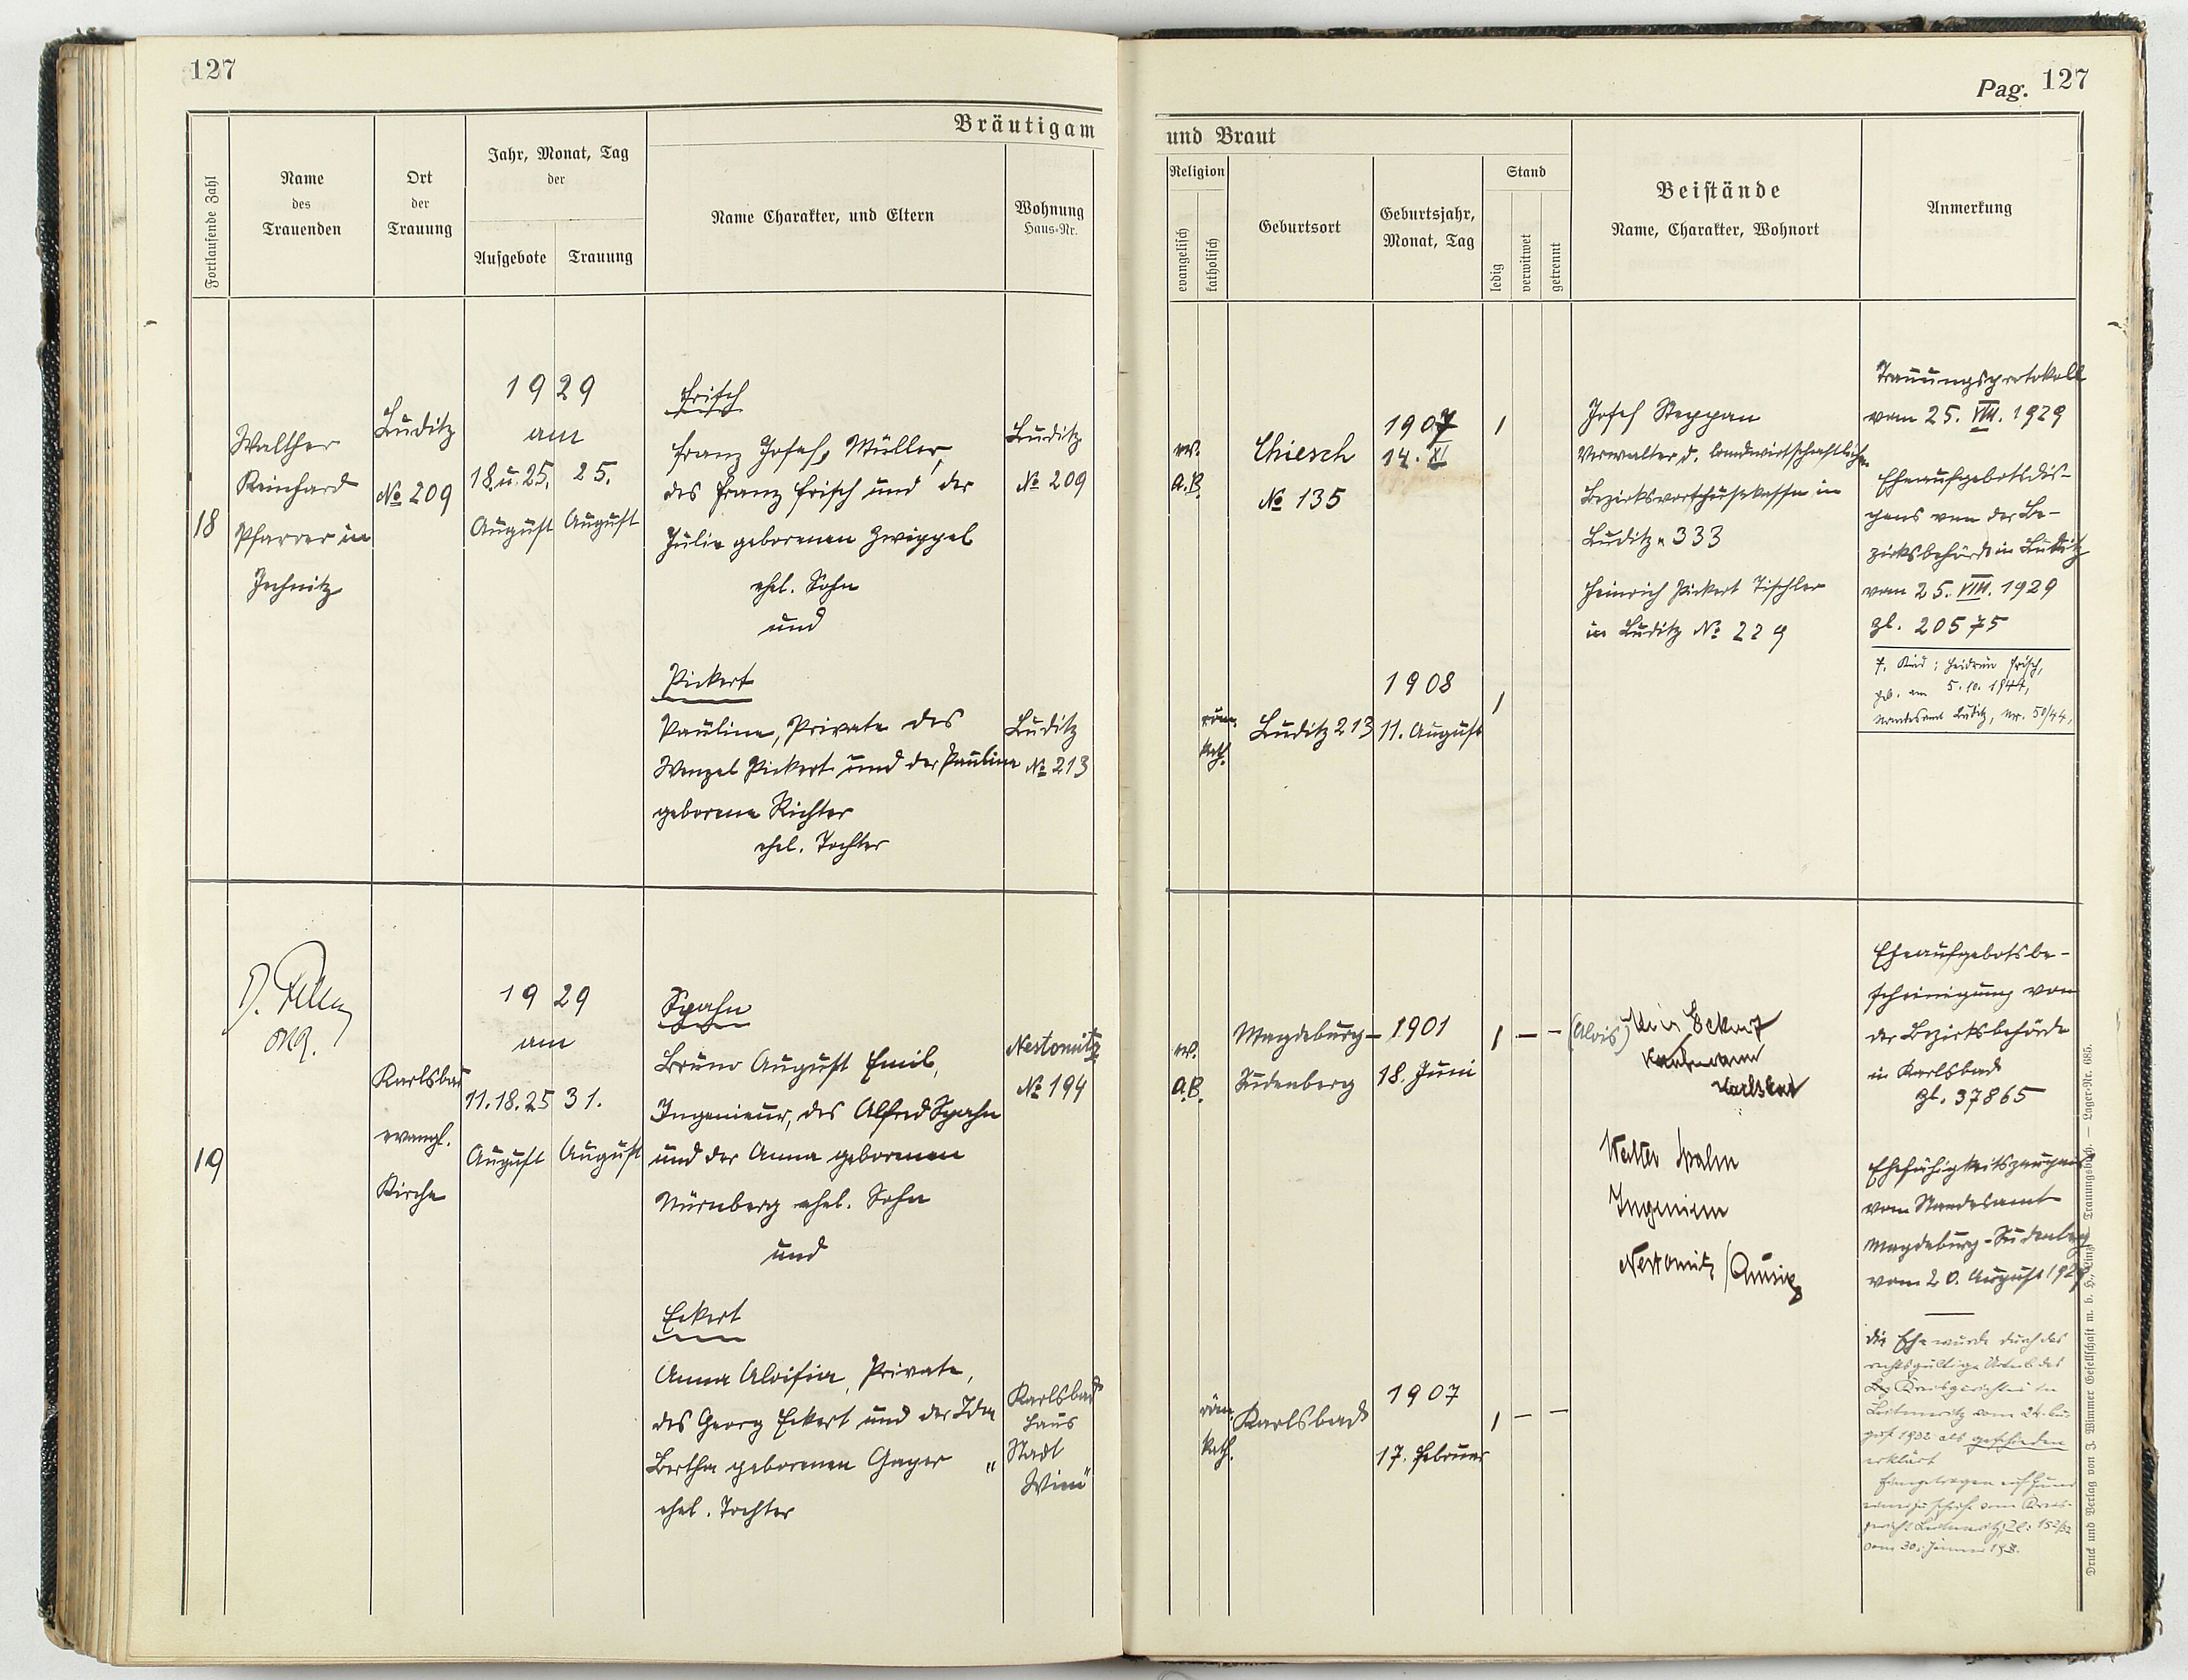 127
Bräutigam
Fortlaufende Zahl
Name
des
Trauenden
Ort
der
Trauung
Jahr, Monat, Tag
der
Aufgebote
Trauung
Name Charakter, und Eltern
Wohnung
Haus-Nr.
18
Walther
Reinhard
Pfarrer in
Jechnitz
Luditz
№ 209
1929
am
18. u. 25.
August
25.
August
Frisch
Franz Josef, Müller,
des Franz Frisch und der
Julie geborenen Zwippel
ehel. Sohn
und
Pickert
Pauline, Private des
Wenzel Pickert und der Pauline
geborene Richter
ehel. Tochter
Luditz
№ 209
Luditz
№ 213
19
D.
Karlsbad
evangl.
Kirche
1929
am
11. 18. 25
August
31.
August
Spahn
Bruno August Emil,
Ingenieur, des Alfred Spahn
und der Anna geborenen
Nürnberg ehel. Sohn
und
Eckert
Anna Aloisia, Private,
des Georg Eckert und der Ida
Bertha geborenen Gayer
ehel. Tochter
Nestomitz
№ 194
Karlsbad
Haus
„Stadt
Wien"
Pag. 127
und Braut
Religion
evangelisch
katholisch
Geburtsort
Geburtsjahr,
Monat, Tag
Stand
ledig
verwitwet
getrennt
Beistände
Name, Charakter, Wohnort
Anmerkung
ev.
A.B.
Chiesch
№ 135
1907
14. XI
Josef Steppan
Verwalter d. landwirtschaftlichen
Bezirksvorschußkasse in
Luditz 333
Heinrich Pickert Tischler
in Luditz № 229
Trauungsprotokoll
vom 25. VIII. 1929
Eheaufgebotsdis-
pens von der Be-
zirksbehörde in Luditz
vom 25. VIII. 1929
Zl. 20575
7. Kind: Heidrun Frisch,
geb. am 5. 10. 1944,
Standesamt Luditz, Nr. 50/44,
röm.
kath.
Luditz 213
1908
11. August
ev.
A.B.
Magdeburg-
Sudenberg
1901
18. Juni
(Alois) Eckert
Kaufmann
Karlsbad
Walter Spahn
Ingenieur
Nestomitz / Aussig
Eheaufgebotsbe-
scheinigung von
der Bezirksbehörde
in Karlsbad
Zl. 37865
Ehefähigkeitszeugnis
vom Standesamt
Magdeburg-Sudenberg
vom 20. August 1929
röm.
kath.
Karlsbad
1907
17. Februar
Die Ehe wurde durch das
rechtsgültige Urteil des
Kreisgerichtes in
Leitmeritz vom 24. Au-
gust 1932 als geschieden
erklärt
Eingetragen auf Grund
vom Kreis-
gericht Leitmeritz, Zl:
vom 30. Jänner
Druck und Verlag von J. Wimmer Gesellschaft m. b. H., Linz. Trauungsbuch. — Lager-Nr. 685.